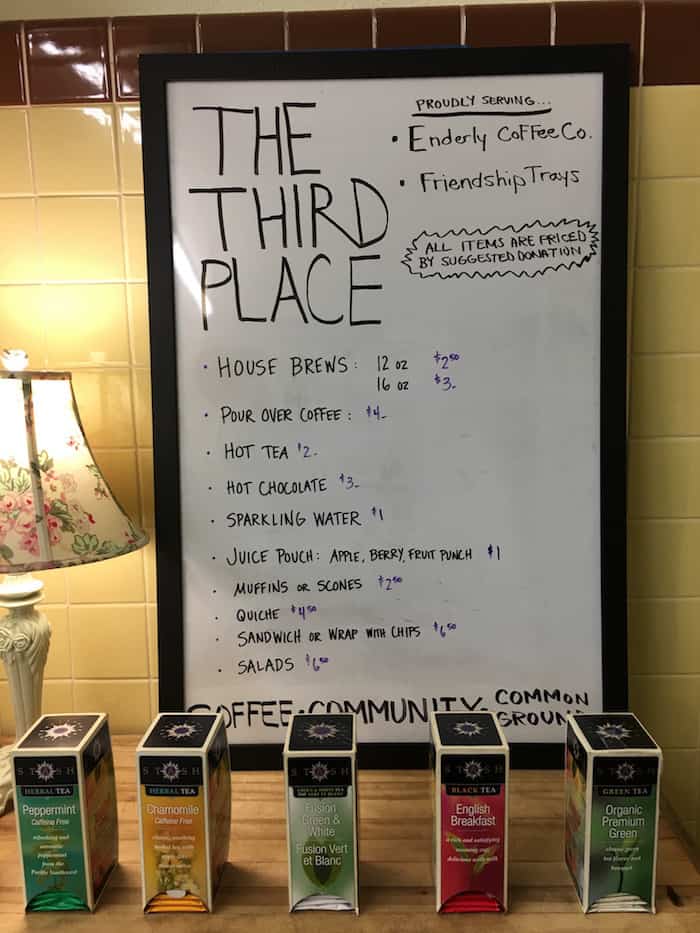 THE
THIRD
PLACE
PROUDLY SERVING...
• Enderly Coffee Co.
• Friendship Trays
ALL ITEMS ARE PRICED
BY SUGGESTED DONATION
• HOUSE BREWS: 12 oz $2.50
16 oz $3-
• POUR OVER COFFEE: $4-
• HOT TEA $2-
• HOT CHOCOLATE $3-
• SPARKLING WATER $1
• JUICE POUCH: APPLE, BERRY, FRUIT PUNCH $1
• MUFFINS OR SCONES $2.50
• QUICHE $4.50
• SANDWICH OR WRAP WITH CHIPS $6.50
• SALADS $6.50
COFFEE • COMMUNITY • COMMON
GROUND
STASH
HERBAL TEA
Peppermint
Caffeine Free
refreshing and
aromatic
peppermint
from the
Pacific Northwest
STASH
HERBAL TEA
Chamomile
Caffeine Free
classic, soothing
herbal tea with
STASH
GREEN & WHITE TEA
THÉ VERT ET BLANC
Fusion
Green &
White
Fusion Vert
et Blanc
STASH
BLACK TEA
English
Breakfast
a rich and satisfying
morning cup,
delicious with milk
STASH
GREEN TEA
Organic
Premium
Green
classic green
tea flavor and
bouquet